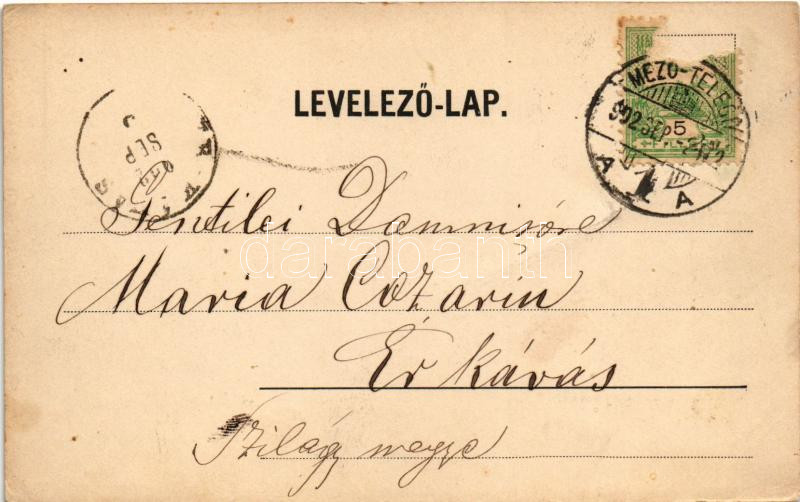 LEVELEZŐ-LAP.
MEZŐ-TELEGD
902 SEP
5
A A
SEP
Gentilei Domnisóre
Maria Cozariu
Ér kávás
Szilágy megye
darabanth